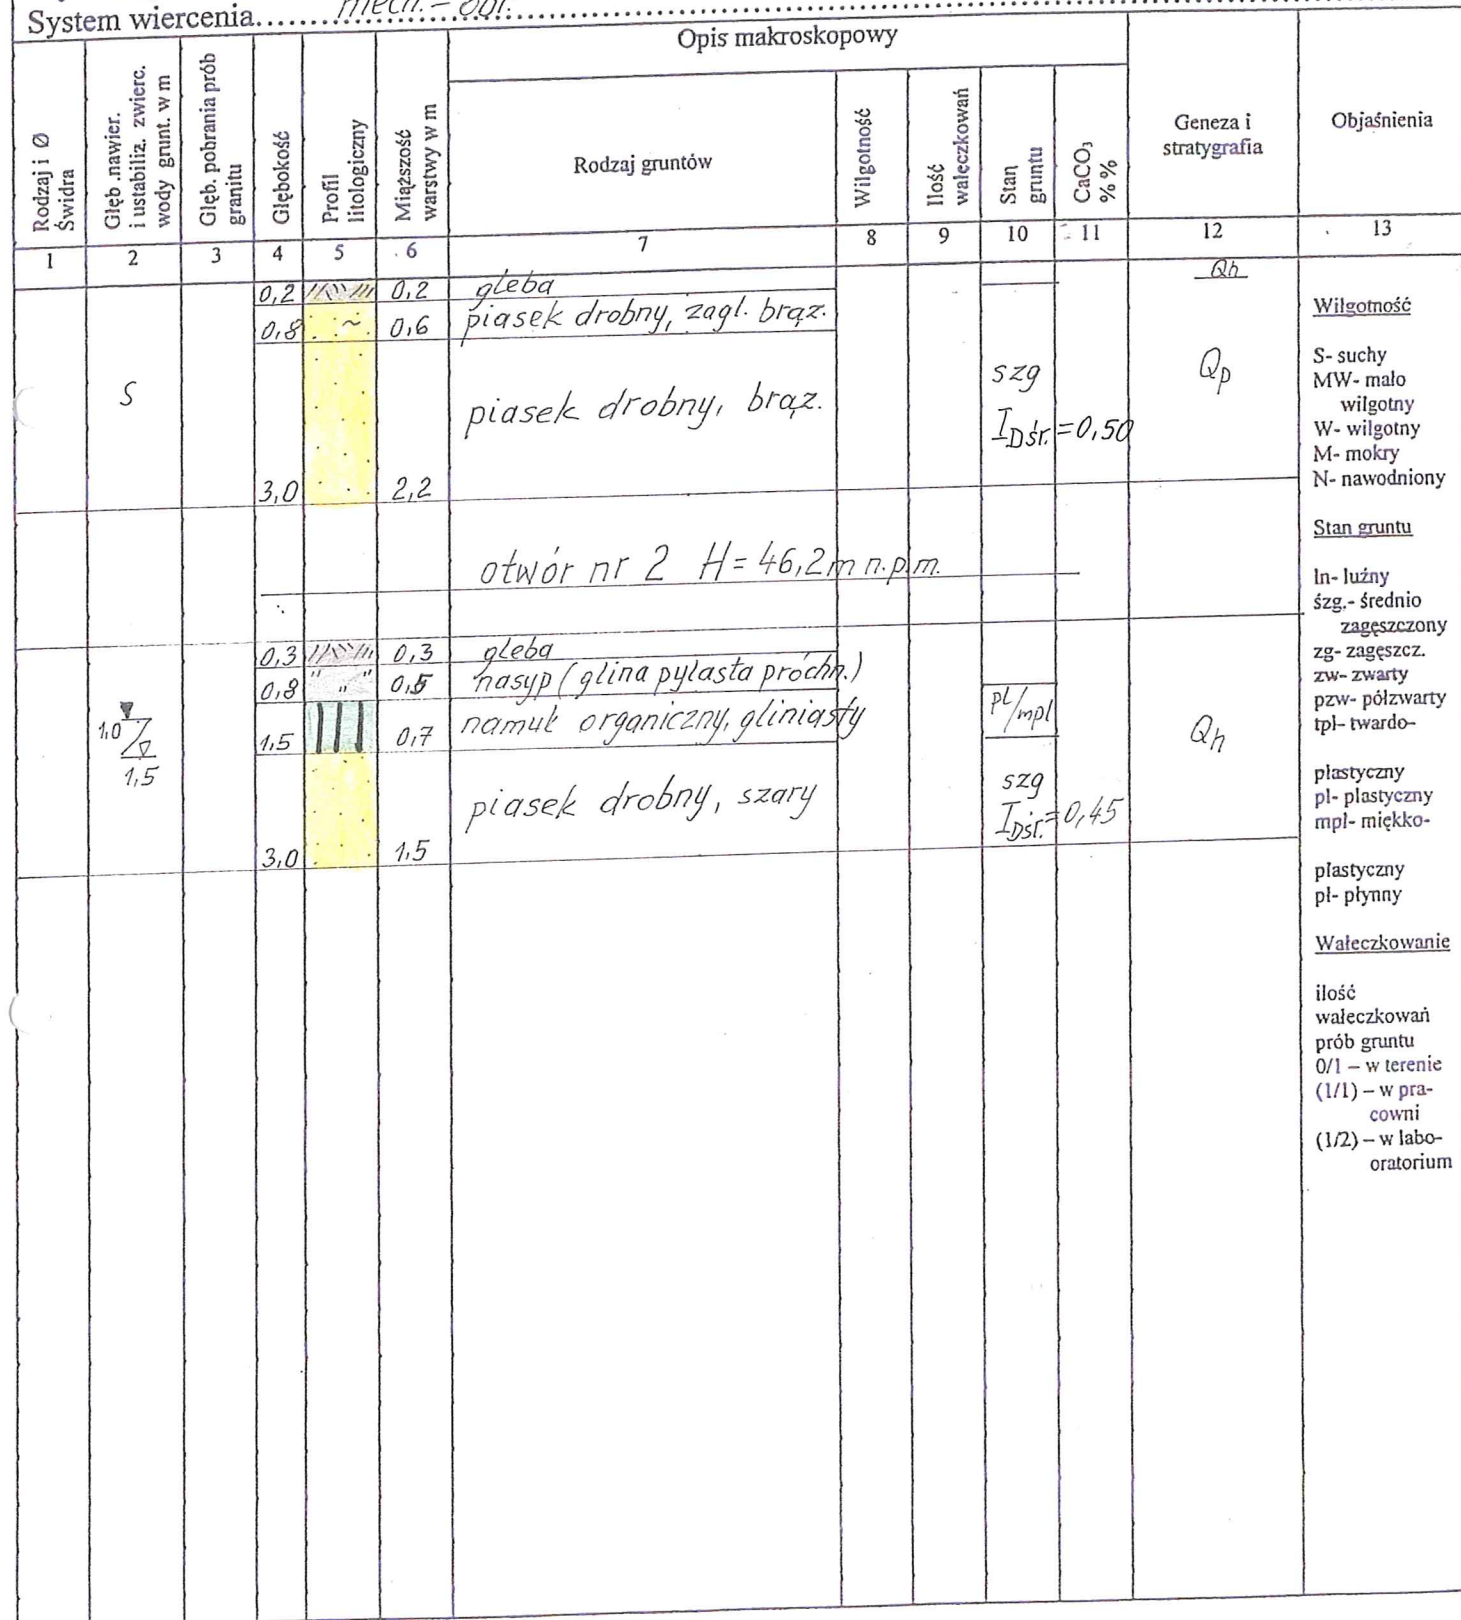 System wiercenia.......mech.-obr.
Opis makroskopowy
Rodzaj i Ø
Świdra
Głęb .nawier.
i ustabiliz. zwierc.
wody grunt. w m
Głęb. pobrania prób
granitu
Głębokość
Profil
litologiczny
Miąższość
warstwy w m
Rodzaj gruntów
Wilgotność
Ilość
wałeczkowań
Stan
gruntu
CaCO3
% %
Geneza i
stratygrafia
Objaśnienia
1 2 3 4 5 6 7 8 9 10 11 12 13
0,2 0,2 gleba Qh
0,8 ~ 0,6 piasek drobny, zagl. brąz.
S piasek drobny, brąz. szg Qp
IDśr.=0,50
3,0 2,2
otwór nr 2 H=46,2m n.p.m.
0,3 0,3 gleba
0,8 " " " 0,5 nasyp (glina pylasta próchn.)
1,0 1,5 0,7 namuł organiczny, gliniasty pl/mpl Qh
1,5
piasek drobny, szary szg
IDśr.=0,45
3,0 1,5
Wilgotność
S- suchy
MW- mało
wilgotny
W- wilgotny
M- mokry
N- nawodniony
Stan gruntu
ln- luźny
śzg.- średnio
zagęszczony
zg- zagęszcz.
zw- zwarty
pzw- półzwarty
tpl- twardo-
plastyczny
pl- plastyczny
mpl- miękko-
plastyczny
pł- płynny
Wałeczkowanie
ilość
wałeczkowań
prób gruntu
0/1 – w terenie
(1/1) – w pra-
cowni
(1/2) – w labo-
oratorium